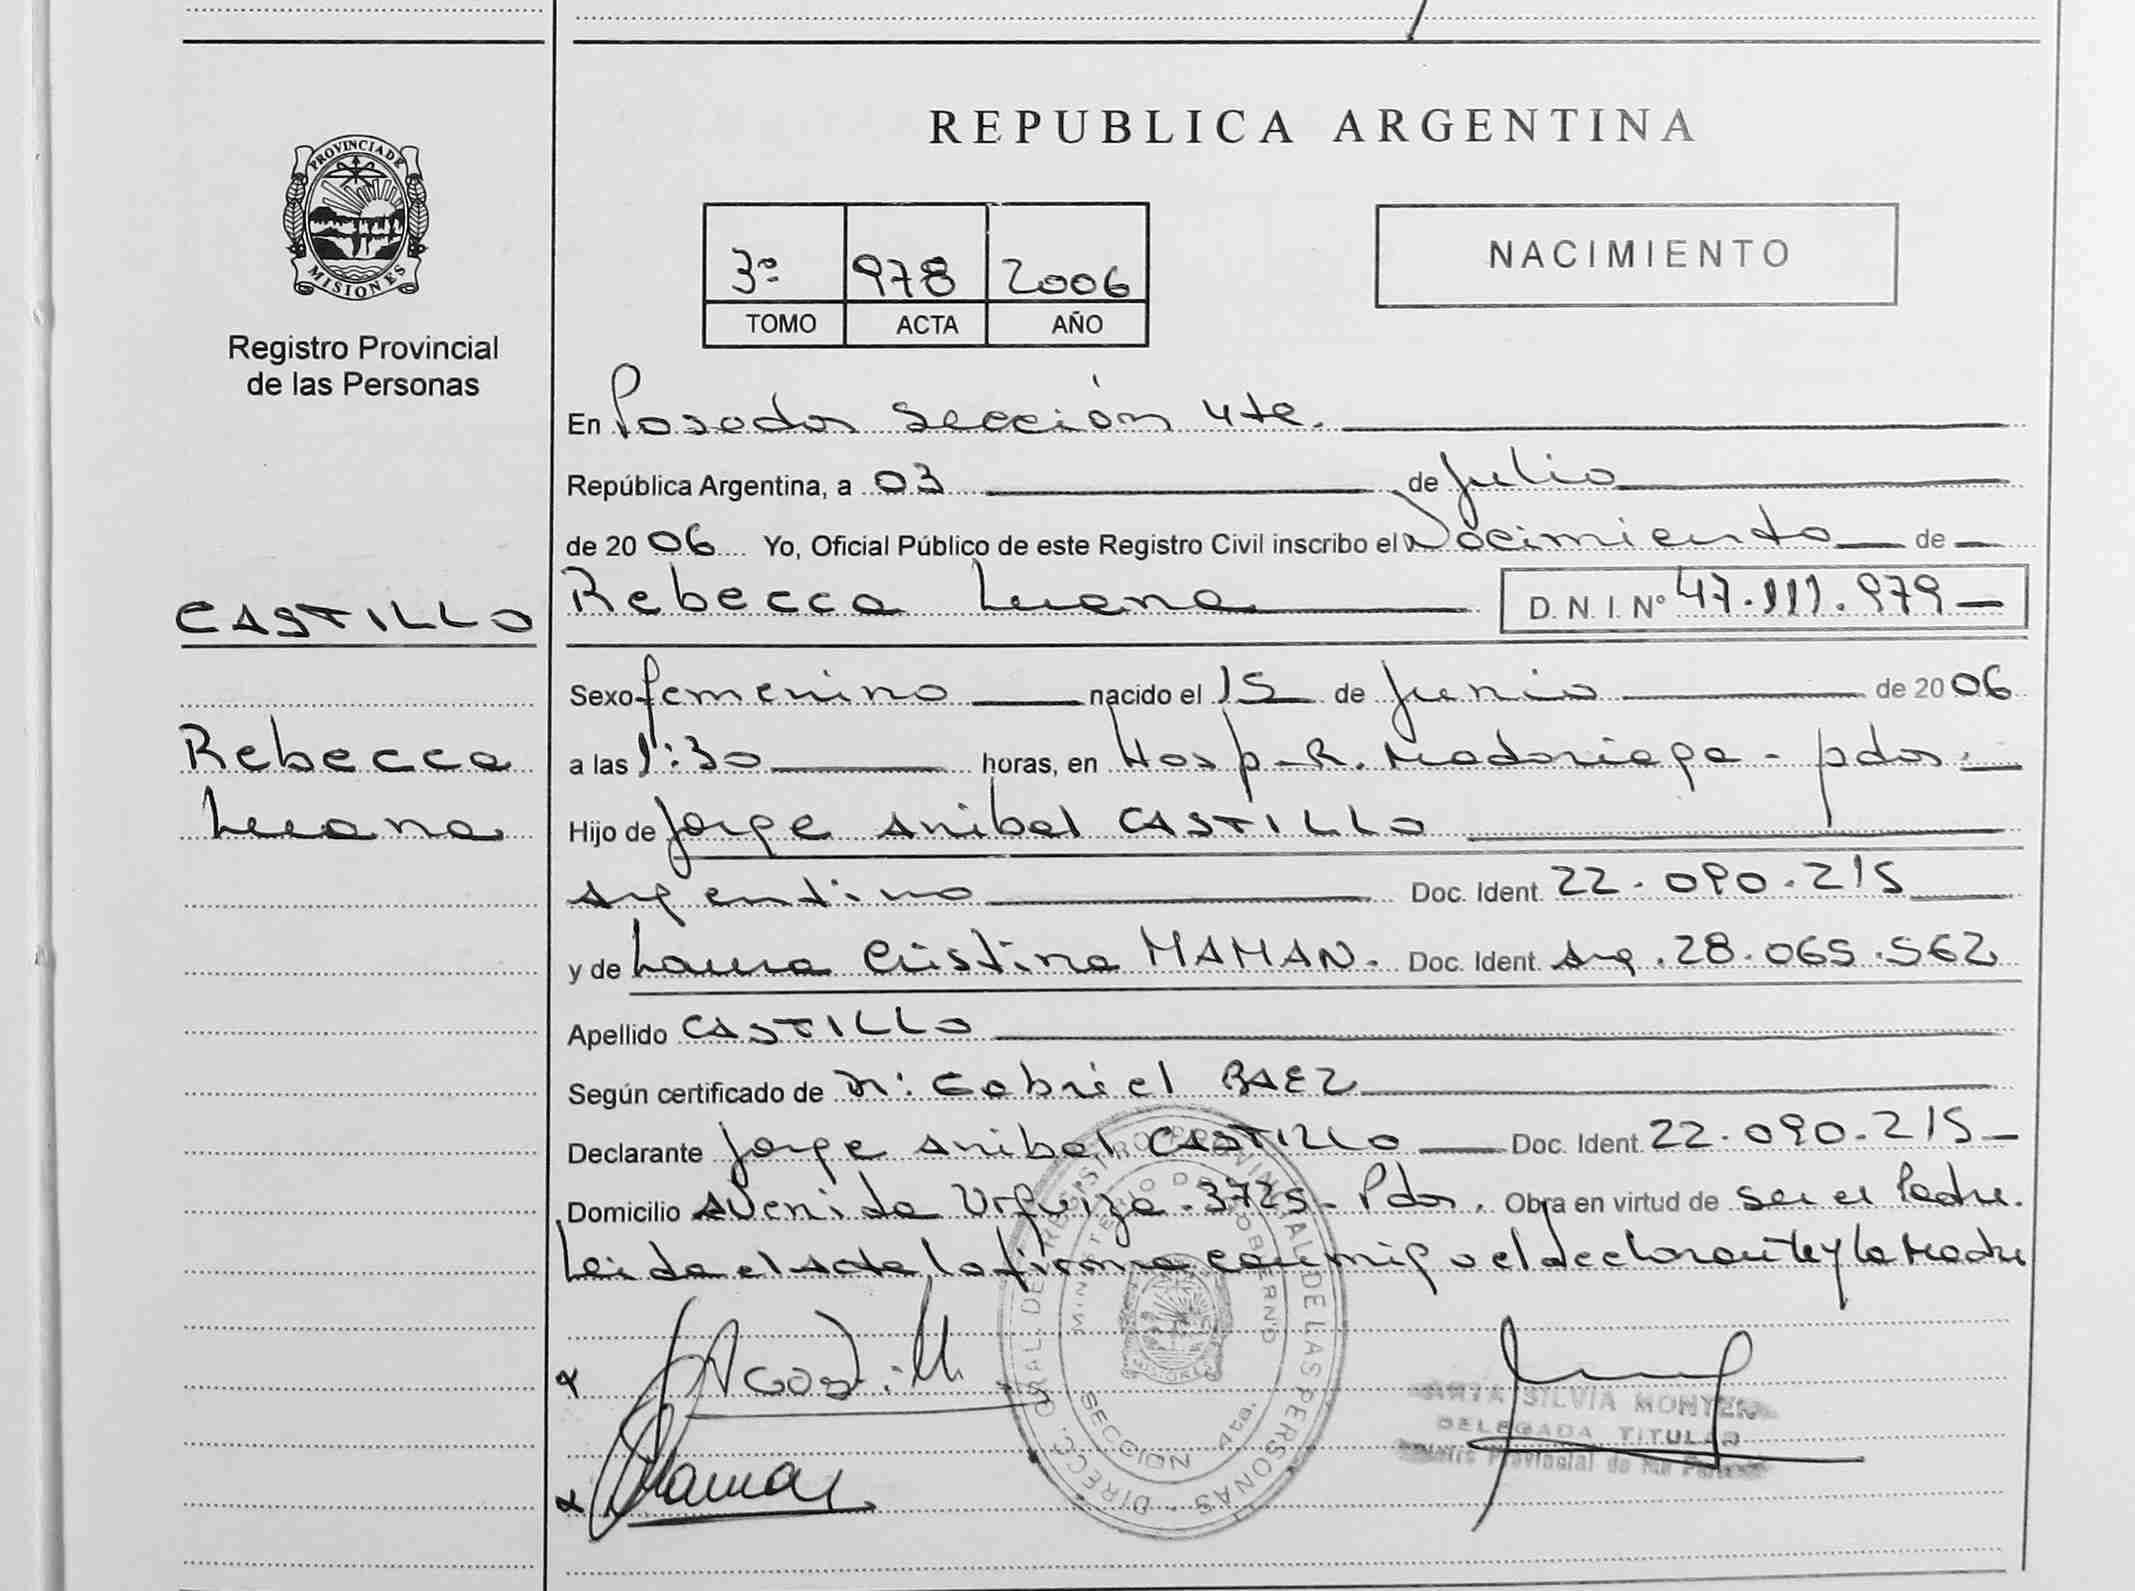 REPUBLICA ARGENTINA
PROVINCIA DE
MISIONES
Registro Provincial
de las Personas
3º 978 2006
TOMO ACTA AÑO
NACIMIENTO
En Posadas Sección 4ta.
República Argentina, a 03 de Julio
de 2006 Yo, Oficial Público de este Registro Civil inscribo el Nacimiento de
CASTILLO
Rebecca Luana
Rebecca Luana D. N. I. Nº 47.111.979
Sexo femenino nacido el 15 de Junio de 2006
a las 1:30 horas, en Hosp. R. Madariaga - pdas.
Hijo de Jorge Anibal CASTILLO
Argentino Doc. Ident. 22.090.215
y de Laura Cristina MAMAN. Doc. Ident. Arg. 28.065.562
Apellido CASTILLO
Según certificado de Dr: Gabriel BAEZ
Declarante Jorge Anibal CASTILLO Doc. Ident. 22.090.215
Domicilio Avenida Urquiza - 3725 - Pdas. Obra en virtud de ser el Padre.
Leida el Acta, la firma conmigo el declarante y la Madre
DIRECC. GRAL. DEL REGISTRO PROVINCIAL DE LAS PERSONAS
MINISTERIO DE GOBIERNO
MISIONES
SECCION 4ta.
SILVIA
DELEGADA TITULAR
Provincial de las